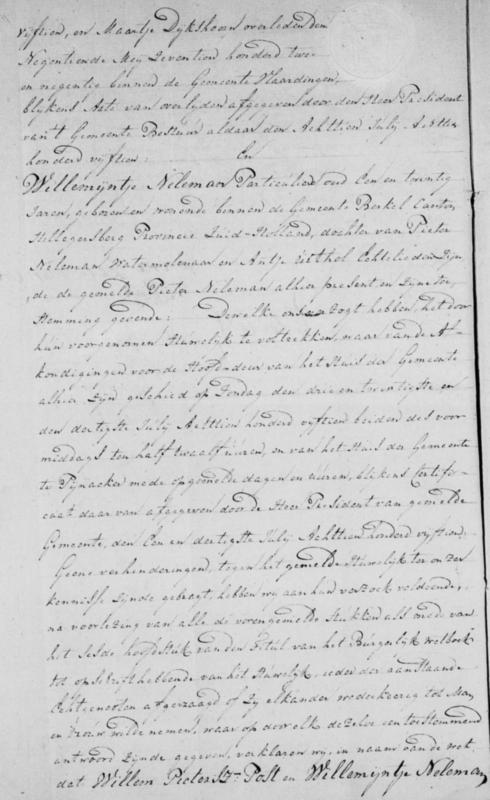 vijftien, en Maartje Dijkshoorn overleden den
Negentiende Mey Zeventien honderd twee
en negentig binnen de Gemeente Vlaardingen,
blijkens Acte van overlyden afgegeven door den Heer President
van 't Gemeente Bestuur aldaar den Achttien July Achttien
honderd vijftien: En
Willemijntje Neleman Particuliere oud Een en twintig
Jaren, geboren en wonende binnen de Gemeente Berkel Canton
Hillegersberg Provincie Zuid-Holland, dochter van Pieter
Neleman Watermolenaar en Antje Echtelieden Zijn,
de de gemelde Pieter Neleman alhier present en Zijne toe,
stemming gevende; Dewelke ons verzogt hebben, het door
hun voorgenomen Huwelyk te voltrekken, waar van de Af-
kondigingen voor de Hoofd-deur van het Huis der Gemeente
alhier Zijn geschied op Zondag den drie en twintigste en
den dertigste July Achttien honderd vijftien beiden des voor
middags ten half twaalf uuren, en van het Huis der Gemeente
te Pijnacker mede op gemelde dagen en uuren, blijkens certifi-
caat daar van afgegeven door de Heer President van gemelde
Gemeente, den Een en dertigste July Achttien honderd vijftien,
Geene verhinderingen, tegen het gemelde Huwelijk ter onzer
kennisse Zijnde gebragt, hebben wij aan hun verzoek voldoende,
na voorlezing van alle de vorengemelde stukken als mede van
het sesde hoofdstuk van den Titul van het Burgerlijk wetboek
tot opschrift hebbende van het Huwelijk, ieder der aanstaande
Echtgenooten afgevraagd of Zij elkander wederkeerig tot Man
en vrouw wilde nemen, waar op door elk dezelve een toestemmend
antwoord Zijnde gegeven, verklaren wij, in naam van de wet
dat Willem Pietersz. Post en Willemijntje Neleman,